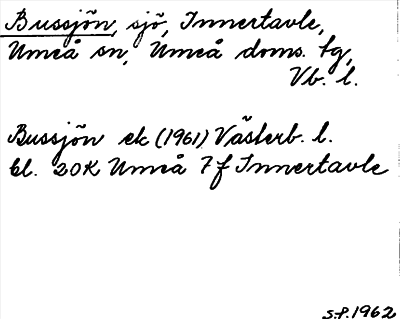 Bussjön, sjö, Innertavle,
Umeå sn, Umeå doms. tg,
Vb. l.
Bussjön ek (1961) Västerb. l.
bl. 20K Umeå 7f Innertavle
S.P. 1962